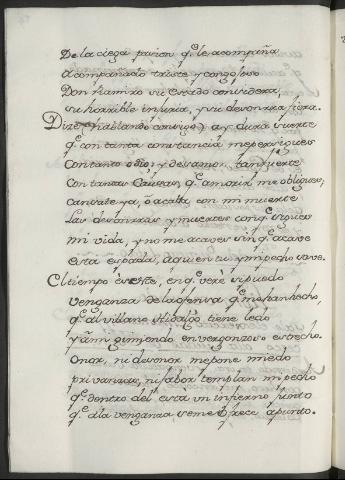 De la ciega pasion q.e le acompaña
Acompañado triste y congojoso
Don Ramiro su estado considera,
su horrible injuria, y su desonrra fiera.
Dize (hablando consigo) ay dura suerte
q.e con tanta constancia me persigues
Con tanto odio, y desamor, tan fuerte
Con tantas Causas, q.e a morir me obligues;
cansate ya, ò acaba con mi muerte
Las desonrras y muertes con q.e sigues
mi vida, y no me acaves sin q.e acave
esta espada, a quien tu y mi pecho save.
El tiempo es este, en q.e verè si puedo
venganza de la ofensa q.e me han hecho
q.e al villano Hidalgo tiene ledo
y a mi gimiendo en vergonzoso estrecho.
Onor, ni desonor me pone miedo
privanzas, ni favor templan mi pecho
q.e dentro del esta un infierno junto
q.e a la venganza se me ofrece a punto.